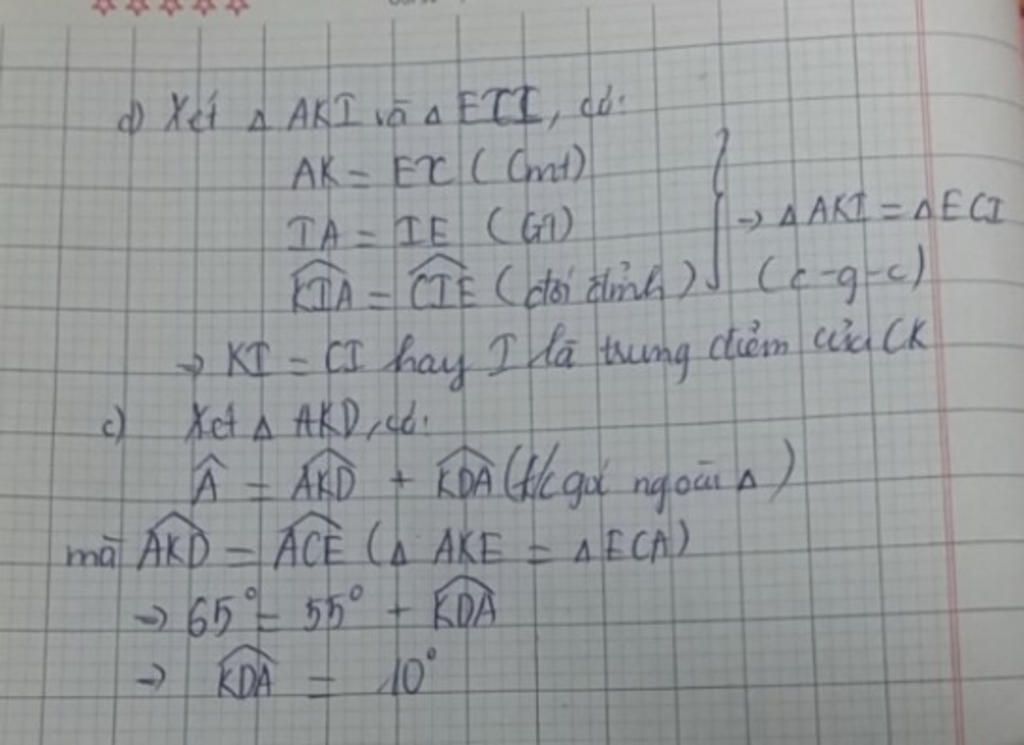 d) Xét △ AKI và △ ECI, có:
AK = EC (Cmt)
IA = IE (GT)
KIA = CIE (đối đỉnh)
→ △ AKI = △ ECI
(c-g-c)
→ KI = CI hay I là trung điểm của CK
c) Xét △ AKD, có:
Â = AKD + KDA (t/c góc ngoài △)
mà AKD = ACE (△ AKE = △ ECA)
→ 65° = 55° + KDA
→ KDA = 10°